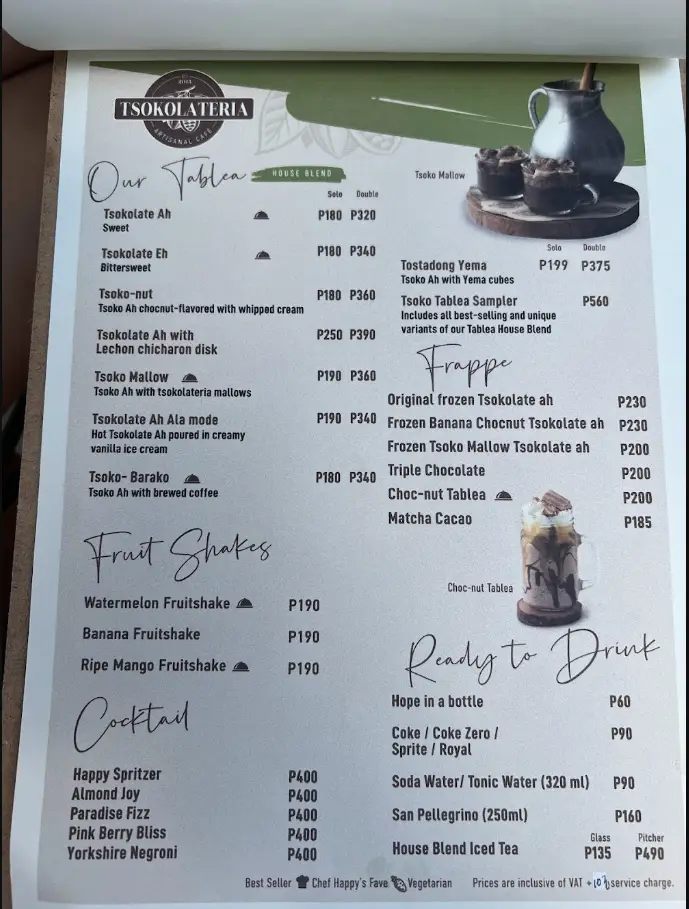 BOHA
TSOKOLATERIA
ARTISANAL CAFE
Our Tablea HOUSE BLEND
Solo Double
Tsokolate Ah P180 P320
Sweet
Tsokolate Eh P180 P340
Bittersweet
Tsoko-nut P180 P360
Tsoko Ah chocnut-flavored with whipped cream
Tsokolate Ah with P250 P390
Lechon chicharon disk
Tsoko Mallow P190 P360
Tsoko Ah with tsokolateria mallows
Tsokolate Ah Ala mode P190 P340
Hot Tsokolate Ah poured in creamy
vanilla ice cream
Tsoko- Barako P180 P340
Tsoko Ah with brewed coffee
Fruit Shakes
Watermelon Fruitshake P190
Banana Fruitshake P190
Ripe Mango Fruitshake P190
Cocktail
Happy Spritzer P400
Almond Joy P400
Paradise Fizz P400
Pink Berry Bliss P400
Yorkshire Negroni P400
Tsoko Mallow
Solo Double
Tostadong Yema P199 P375
Tsoko Ah with Yema cubes
Tsoko Tablea Sampler P560
Includes all best-selling and unique
variants of our Tablea House Blend
Frappe
Original frozen Tsokolate ah P230
Frozen Banana Chocnut Tsokolate ah P230
Frozen Tsoko Mallow Tsokolate ah P200
Triple Chocolate P200
Choc-nut Tablea P200
Matcha Cacao P185
Choc-nut Tablea
Ready to Drink
Hope in a bottle P60
Coke / Coke Zero / P90
Sprite / Royal
Soda Water/ Tonic Water (320 ml) P90
San Pellegrino (250ml) P160
Glass Pitcher
House Blend Iced Tea P135 P490
Best Seller Chef Happy's Fave Vegetarian Prices are inclusive of VAT + 10% service charge.